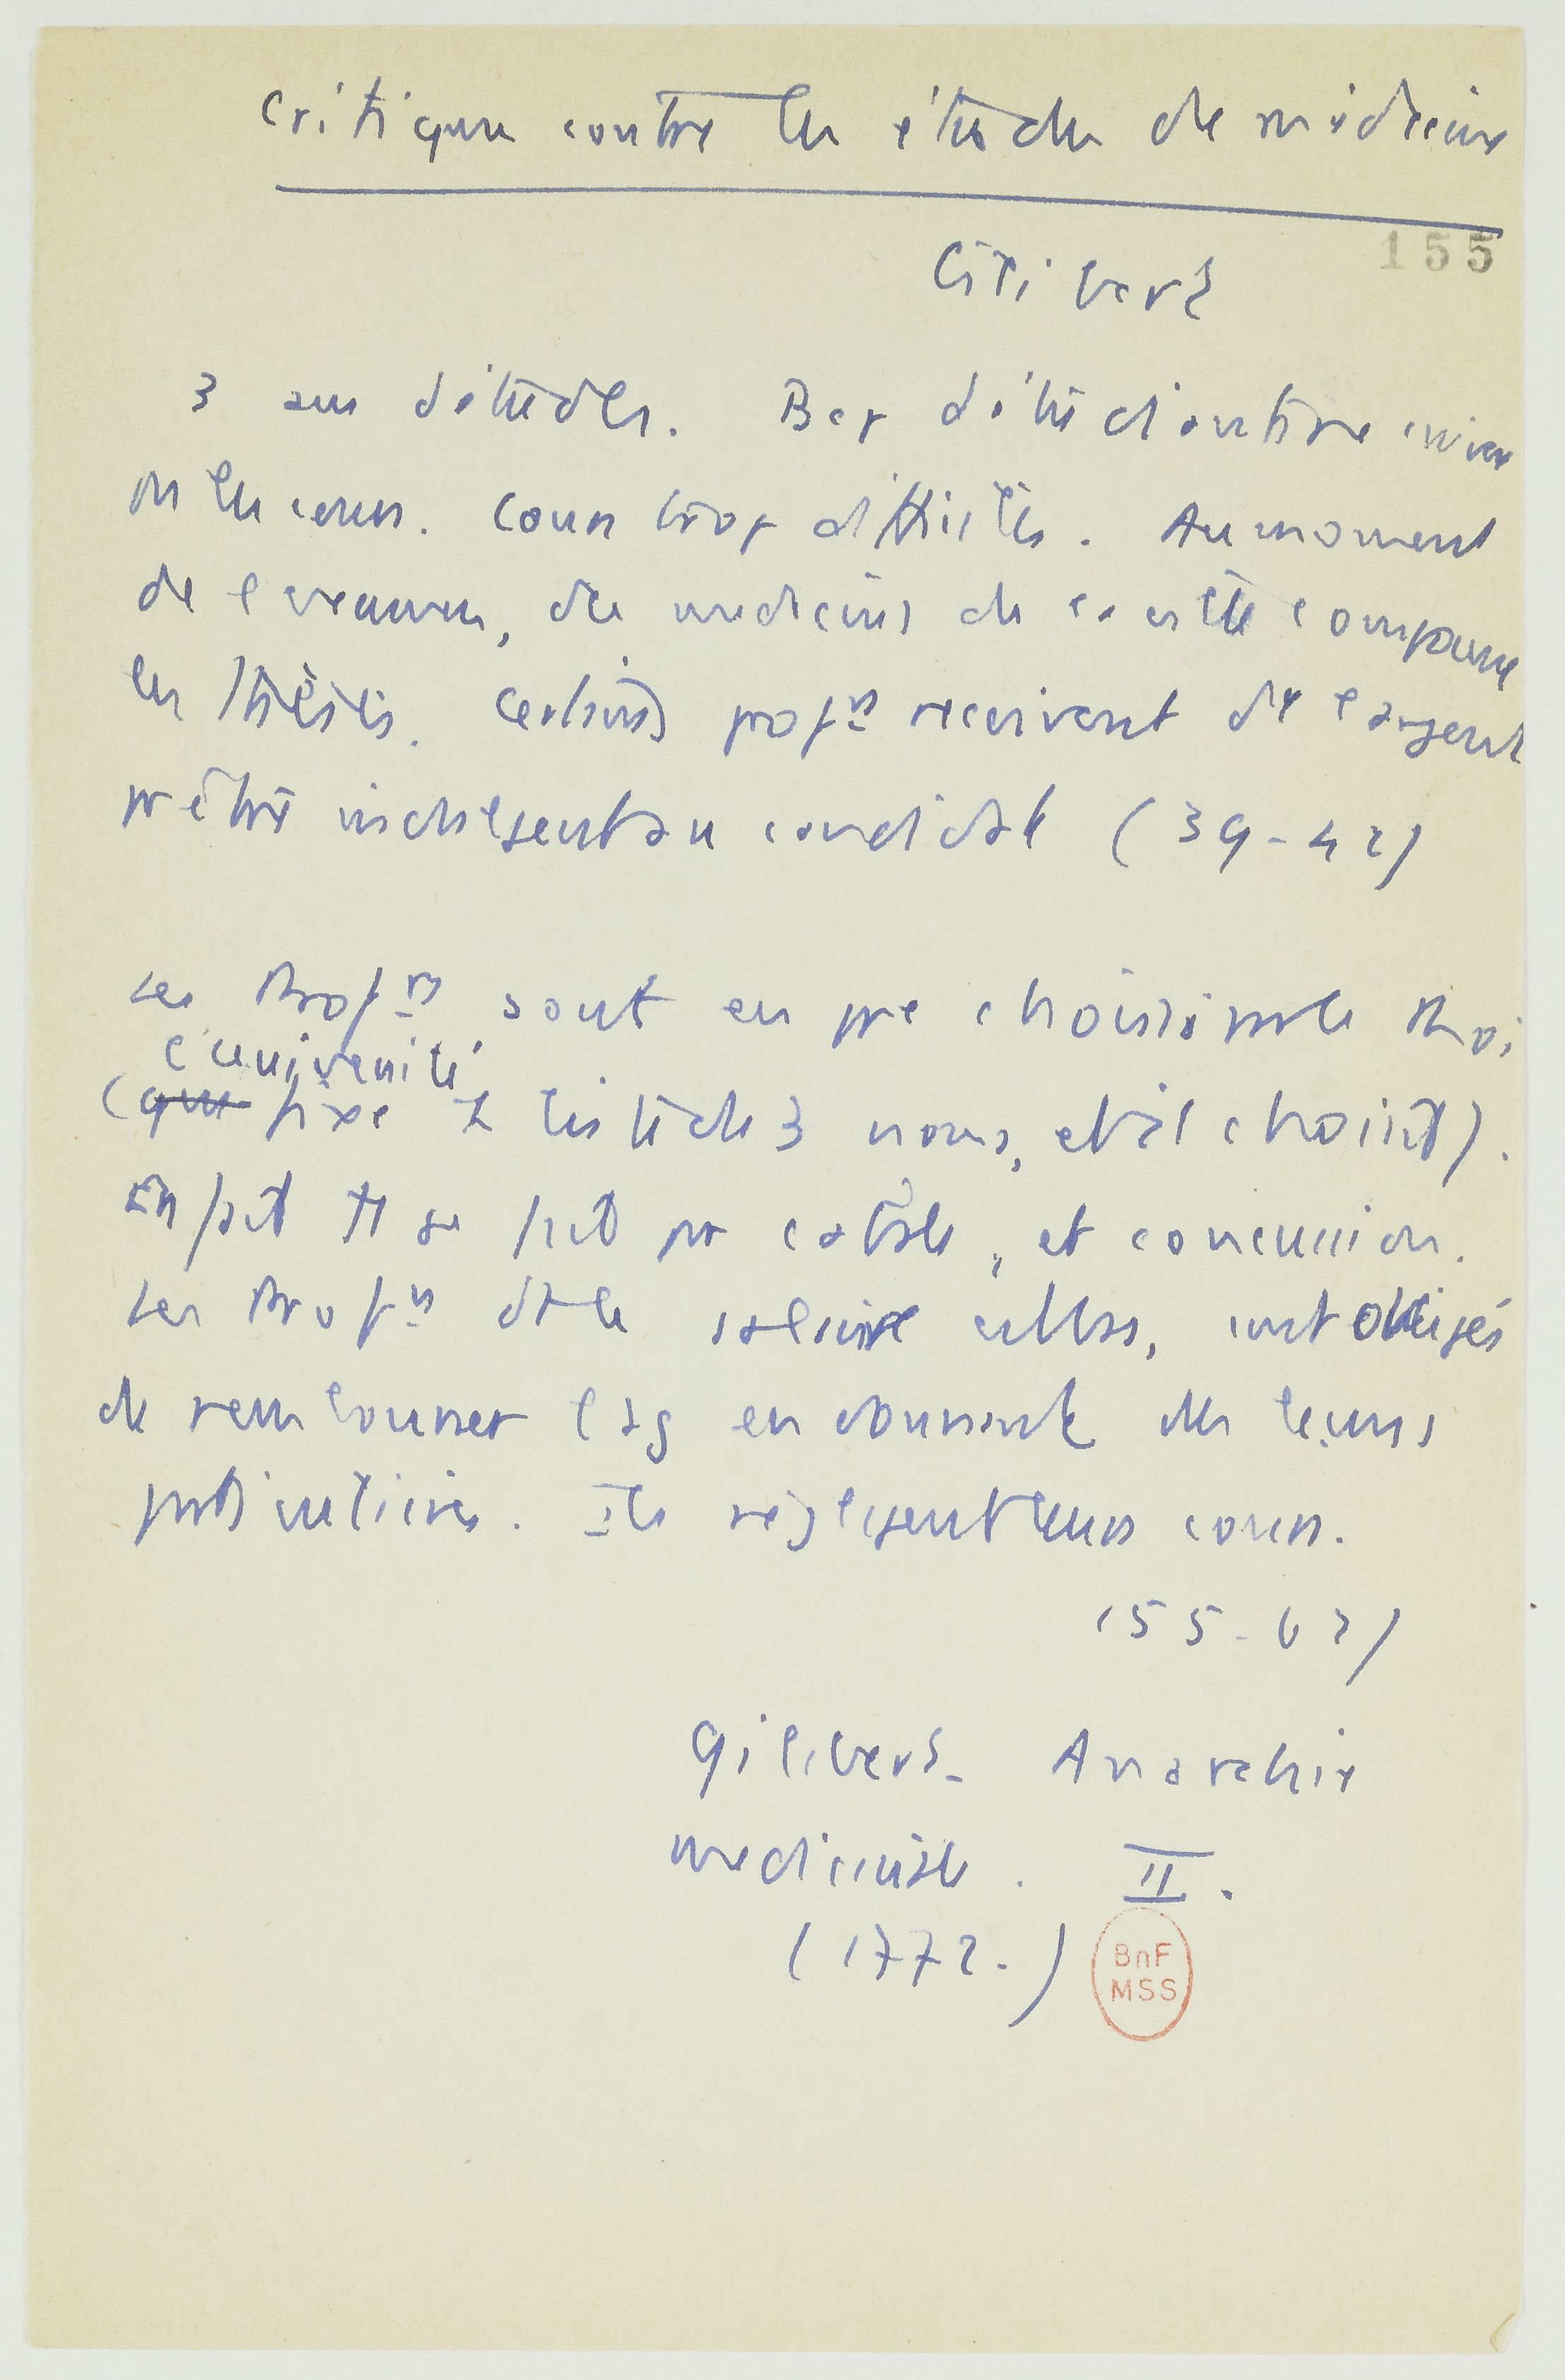 Critiques contre les études de médecine
155
Gilibert
3 ans d'études. Bcp d'étudiants ne suivent
pas les cours. Cours trop difficiles. Au moment
de l'examen, des médecins de la ville composent
les thèses. Certains profrs reçoivent de l'argent
pr être indulgents au candidat (39-42)
Les Profrs sont en ppe choisis par le Roi
l'université
(qui fixe la liste de 3 noms, et il choisit).
En fait tt se fait par cabale, et concussion.
Les Profrs dt le salaire est bas, sont obligés
de rembourser l'arg en donnant des leçons
particulières. Ils négligent leurs cours.
(55-62)
Gilibert. Anarchie
médicinale. II.
(1772.)
BnF
MSS